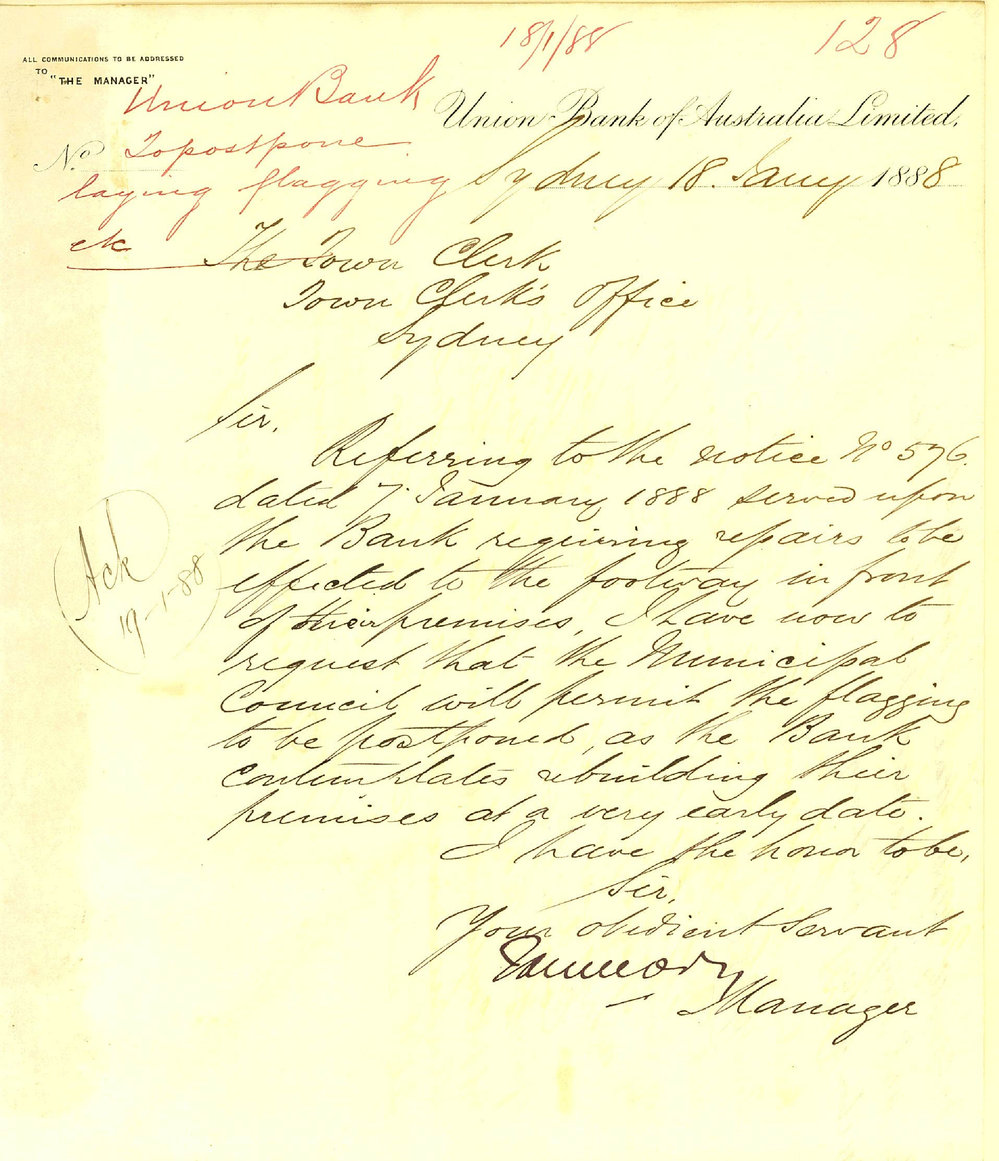 18/1/88
128
ALL COMMUNICATIONS TO BE ADDRESSED
TO "THE MANAGER"
Union Bank
Union Bank of Australia Limited.
No.
To postpone
laying flagging
etc
Sydney 18. Jany 1888
The Town Clerk
Town Clerk's Office
Sydney
Sir,
Referring to the notice No 576.
dated 7. January 1888 served upon
the Bank requiring repairs to be
effected to the footway in front
of their premises, I have now to
request that the Municipal
Council will permit the flagging
to be postponed, as the Bank
contemplates rebuilding their
premises at a very early date.
I have the honor to be,
Sir,
Your obedient Servant
Manager
Ack
19-1-88